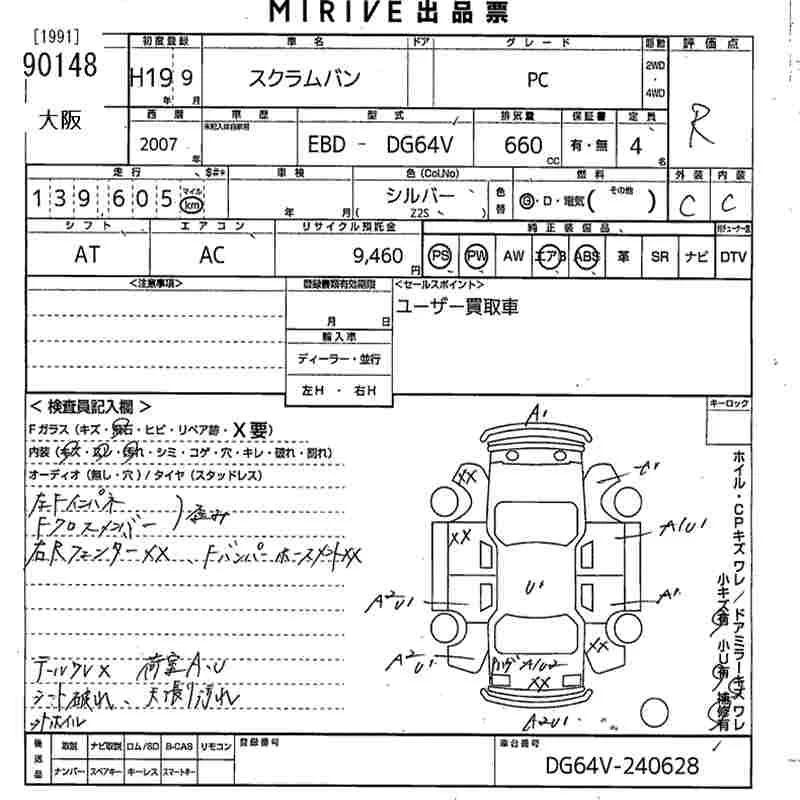 MIRIVE 出品票
[1991]
90148
大阪
初度登録 車名 ドア グレード 駆動 評価点
H19 9 スクラムバン PC 2WD・4WD R
年 月
西暦 車歴 型式 排気量 保証書 定員
未記入は自家用
2007 EBD - DG64V 660 有・無 4
年 cc 名
走行 $#* 車検 色(Col.No) 燃料 外装 内装
139,605 マイル km 年 月 シルバー 色替 G・D・電気( その他 ) C C
( Z2S )
シフト エアコン リサイクル預託金 純正装備品
AT AC 9,460円 PS PW AW エアB ABS 革 SR ナビ DTV
<注意事項> 登録書類有効期限 <セールスポイント>
月 日 ユーザー買取車
輸入車
ディーラー・並行
左H ・ 右H
キーロック
< 検査員記入欄 >
Fガラス(キズ・飛石・ヒビ・リペア跡・X要)
内装(キズ・スレ・汚れ・シミ・コゲ・穴・キレ・破れ・割れ)
オーディオ(無し・穴)/タイヤ(スタッドレス)
左Fインパネ
Fクロスメンバー )歪み
右Rフェンダー XX、Fバンパーホースメント XX
テールワレX 荷室A.U
シート破れ、天張り汚れ
ットホイル
A1
XX U1
XX A1U1
U1
A2U1 A1
XX
A2U1 A1U2
XX
A2U1
ホイル・CPキズワレ/ドアミラーキズワレ
小キズ有 小U有 補修有
後送品 取説 ナビ取説 ロム/SD B-CAS リモコン 登録番号 車台番号
ナンバー スペアキー キーレス スマートキー DG64V-240628